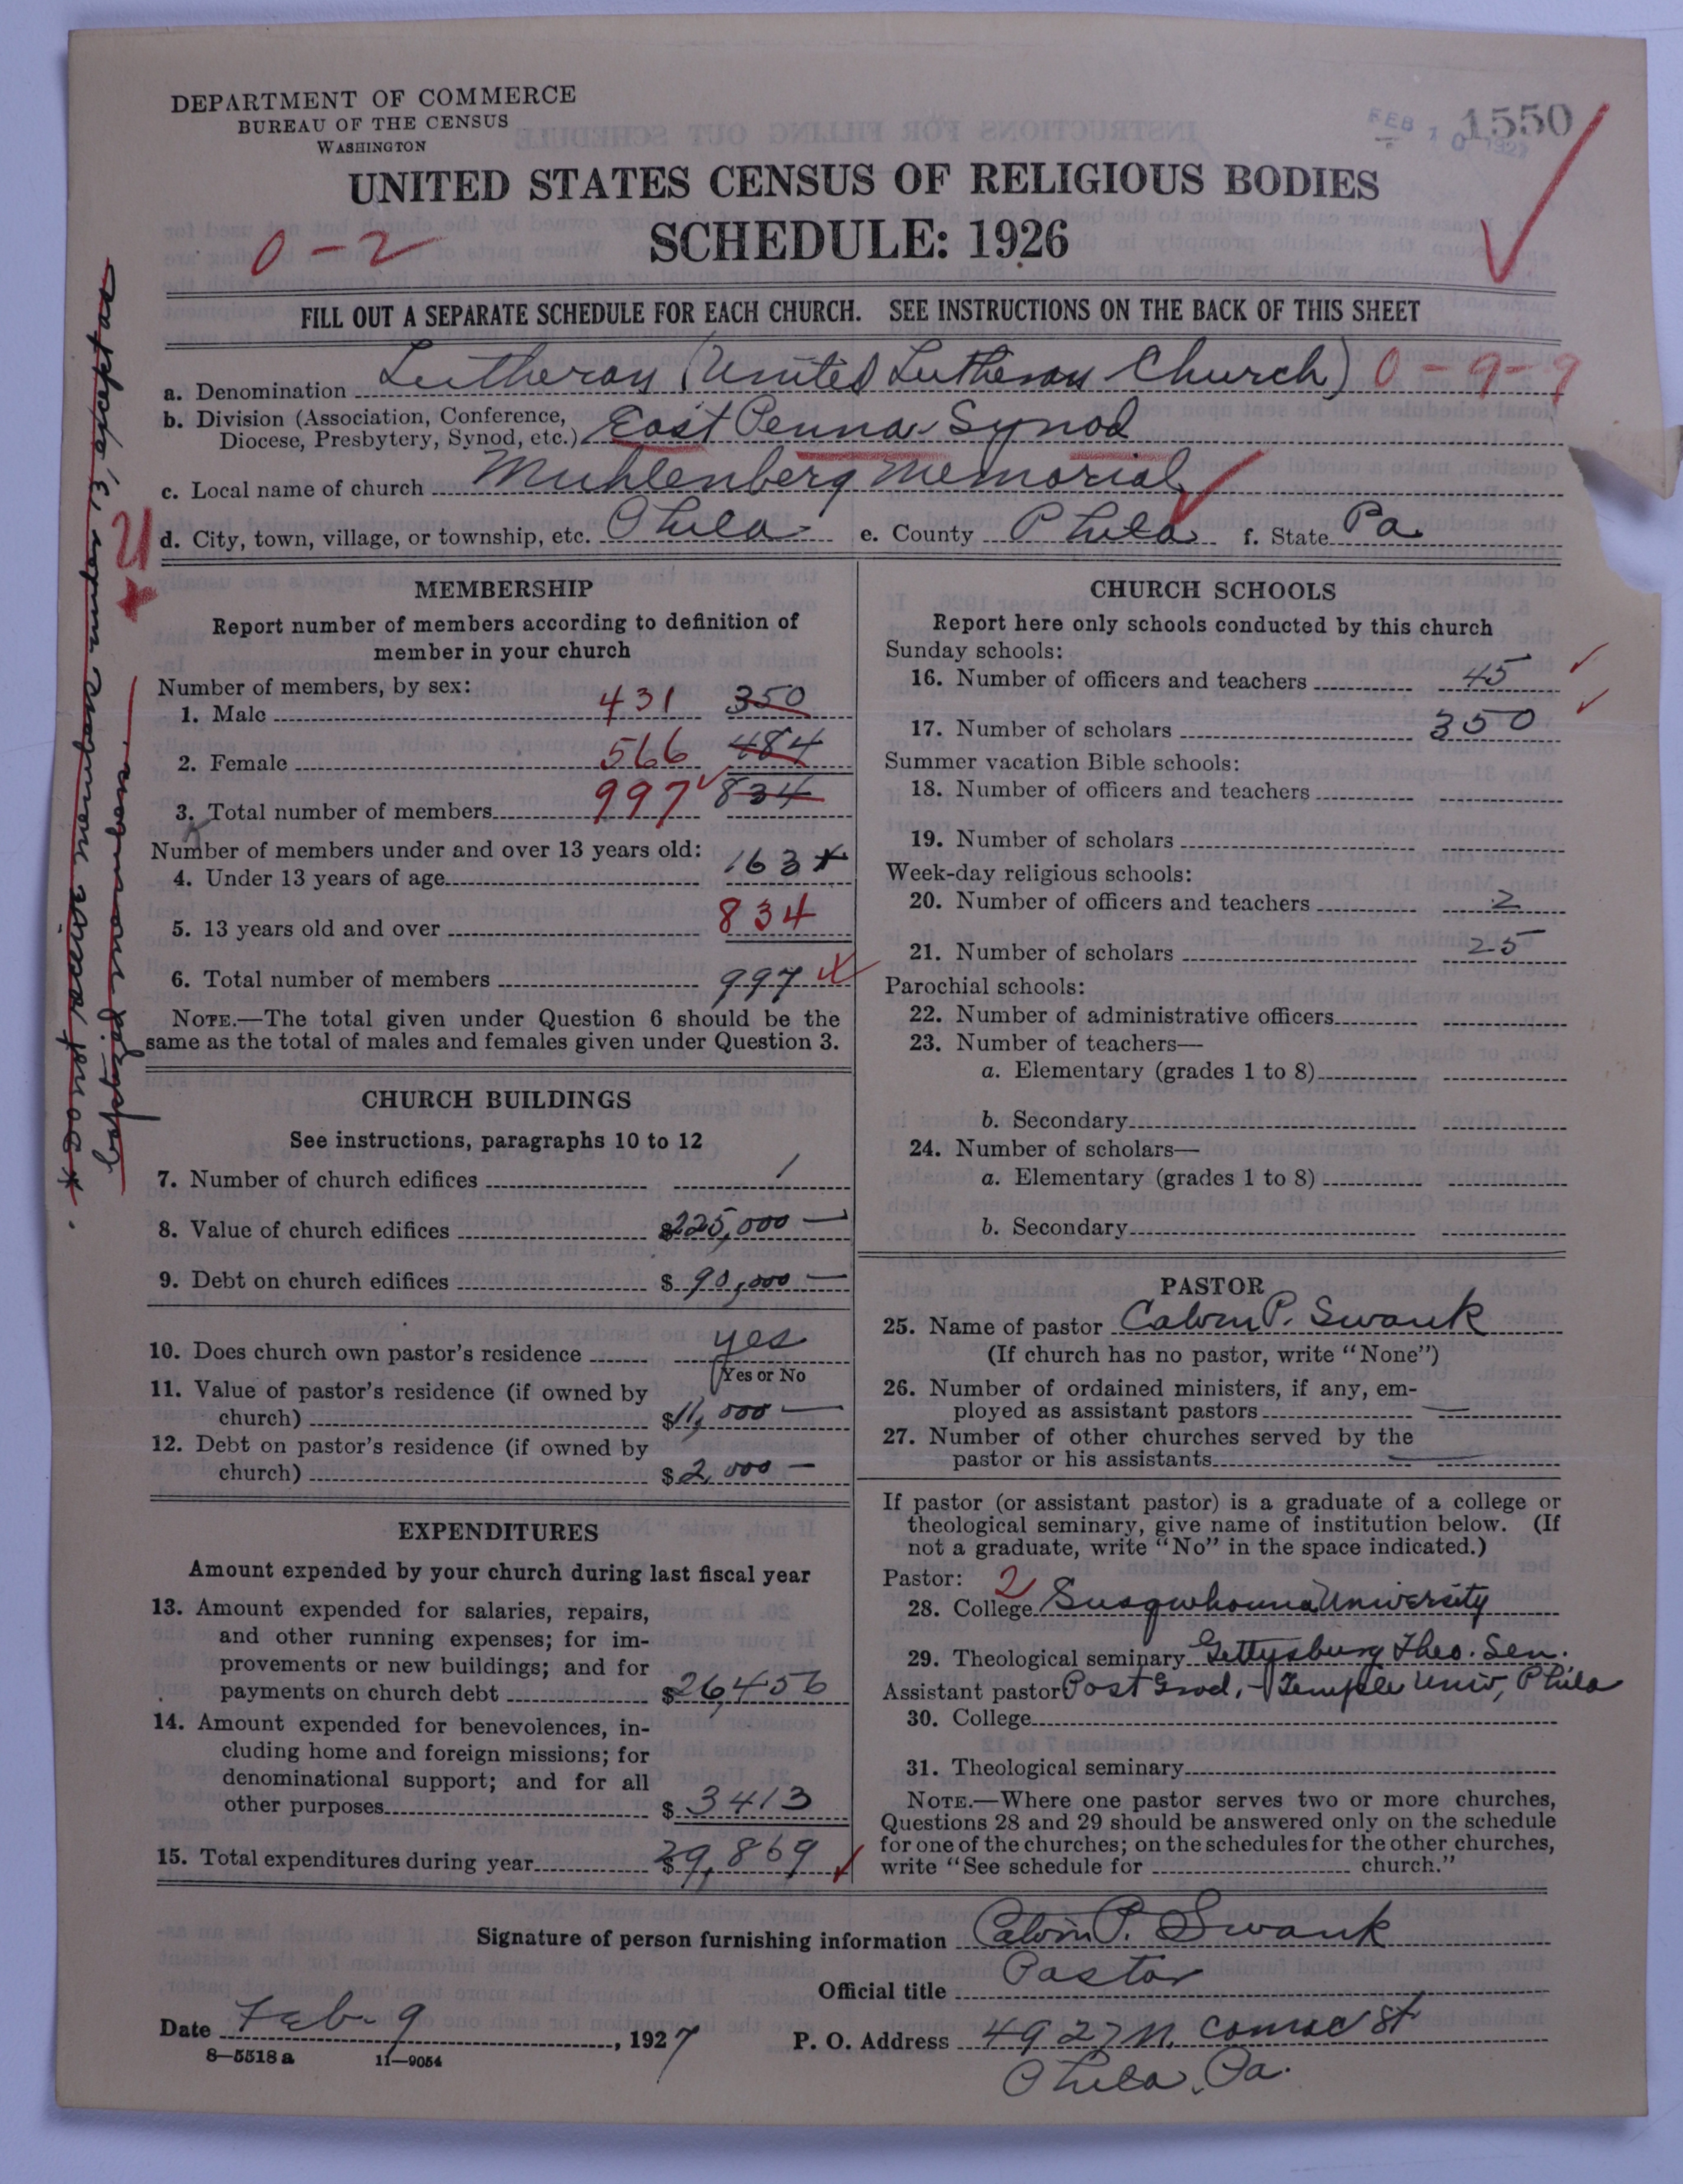 DEPARTMENT OF COMMERCE
BUREAU OF THE CENSUS
WASHINGTON
FEB 10 1927
1550
UNITED STATES CENSUS OF RELIGIOUS BODIES
SCHEDULE: 1926
0-2
FILL OUT A SEPARATE SCHEDULE FOR EACH CHURCH. SEE INSTRUCTIONS ON THE BACK OF THIS SHEET
a. Denomination Lutheran (United Lutheran Church) 0-9-9
b. Division (Association, Conference,
Diocese, Presbytery, Synod, etc.) East Penna. Synod
c. Local name of church Muhlenberg Memorial
d. City, town, village, or township, etc. Phila e. County Phila f. State Pa
* does not practice members under 13, except as
baptized non-members.
MEMBERSHIP
Report number of members according to definition of
member in your church
Number of members, by sex:
1. Male 431 350
2. Female 566 484
3. Total number of members 997 834
Number of members under and over 13 years old:
4. Under 13 years of age 163 *
5. 13 years old and over 834
6. Total number of members 997
NOTE.—The total given under Question 6 should be the
same as the total of males and females given under Question 3.
CHURCH BUILDINGS
See instructions, paragraphs 10 to 12
7. Number of church edifices 1
8. Value of church edifices $225,000 —
9. Debt on church edifices $90,000 —
10. Does church own pastor's residence yes
Yes or No
11. Value of pastor's residence (if owned by
church) $11,000 —
12. Debt on pastor's residence (if owned by
church) $2,000 —
EXPENDITURES
Amount expended by your church during last fiscal year
13. Amount expended for salaries, repairs,
and other running expenses; for im-
provements or new buildings; and for
payments on church debt $26,456
14. Amount expended for benevolences, in-
cluding home and foreign missions; for
denominational support; and for all
other purposes $3413
15. Total expenditures during year $29,869
CHURCH SCHOOLS
Report here only schools conducted by this church
Sunday schools:
16. Number of officers and teachers 45
17. Number of scholars 350
Summer vacation Bible schools:
18. Number of officers and teachers
19. Number of scholars
Week-day religious schools:
20. Number of officers and teachers 2
21. Number of scholars 25
Parochial schools:
22. Number of administrative officers
23. Number of teachers—
a. Elementary (grades 1 to 8)
b. Secondary
24. Number of scholars—
a. Elementary (grades 1 to 8)
b. Secondary
PASTOR
25. Name of pastor Calvin P. Swank
(If church has no pastor, write "None")
26. Number of ordained ministers, if any, em-
ployed as assistant pastors —
27. Number of other churches served by the
pastor or his assistants —
If pastor (or assistant pastor) is a graduate of a college or
theological seminary, give name of institution below. (If
not a graduate, write "No" in the space indicated.)
Pastor: 2
28. College Susquehanna University
29. Theological seminary Gettysburg Theo. Sem.
Assistant pastor Post Grad, - Temple Univ, Phila
30. College
31. Theological seminary
NOTE.—Where one pastor serves two or more churches,
Questions 28 and 29 should be answered only on the schedule
for one of the churches; on the schedules for the other churches,
write "See schedule for church."
Signature of person furnishing information Calvin P. Swank
Official title Pastor
Date Feb. 9, 1927 P. O. Address 4927 N. Camac St
Phila, Pa.
8—5518a 11—9054